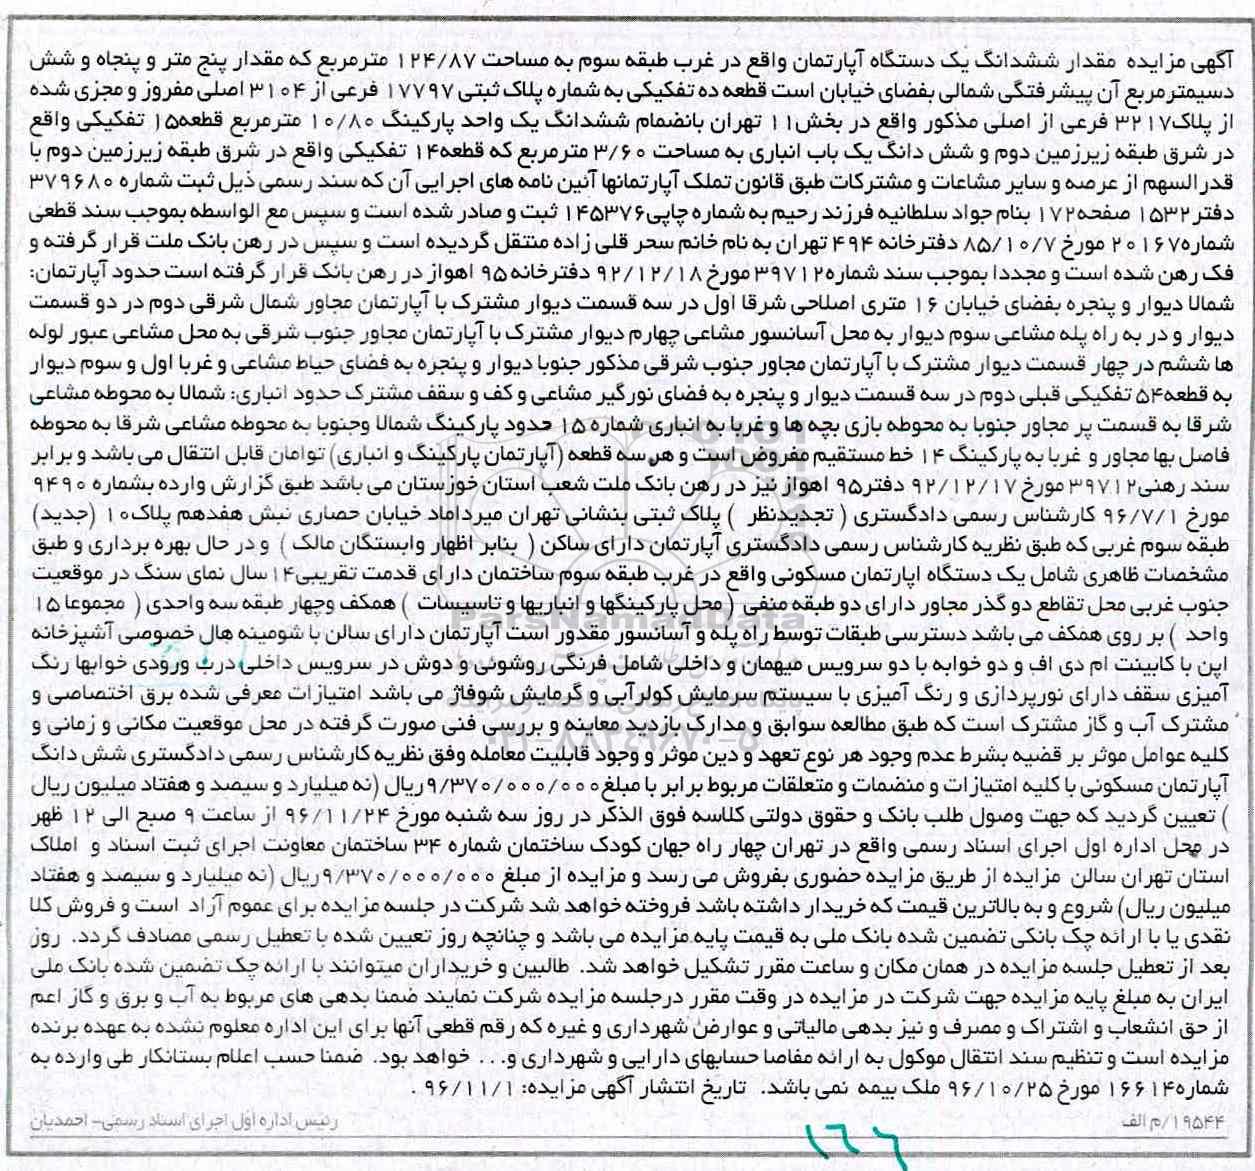 آگهی مزایده مقدار ششدانگ یک دستگاه آپارتمان واقع در غرب طبقه سوم به مساحت ۱۲۴/۸۷ مترمربع که مقدار پنج متر و پنجاه و شش
دسیمترمربع آن پیشرفتگی شمالی بفضای خیابان است قطعه ده تفکیکی به شماره پلاک ثبتی ۱۷۷۹۷ فرعی از ۳۱۰۴ اصلی مفروز و مجزی شده
از پلاک۳۲۱۷ فرعی از اصلی مذکور واقع در بخش۱۱ تهران بانضمام ششدانگ یک واحد پارکینگ ۱۰/۸۰ مترمربع قطعه۱۵ تفکیکی واقع
در شرق طبقه زیرزمین دوم و شش دانگ یک باب انباری به مساحت ۳/۶۰ مترمربع که قطعه۱۴ تفکیکی واقع در شرق طبقه زیرزمین دوم با
قدرالسهم از عرصه و سایر مشاعات و مشترکات طبق قانون تملک آپارتمانها آئین نامه های اجرایی آن که سند رسمی ذیل ثبت شماره ۳۷۹۶۸۰
دفتر۱۵۳۲ صفحه۱۷۲ بنام جواد سلطانیه فرزند رحیم به شماره چاپی۱۴۵۳۷۶ ثبت و صادر شده است و سپس مع الواسطه بموجب سند قطعی
شماره۲۰۱۶۷ مورخ ۸۵/۱۰/۷ دفترخانه ۴۹۴ تهران به نام خانم سحر قلی زاده منتقل گردیده است و سپس در رهن بانک ملت قرار گرفته و
فک رهن شده است و مجددا بموجب سند شماره۳۹۷۱۲ مورخ ۹۲/۱۲/۱۸ دفترخانه ۹۵ اهواز در رهن بانک قرار گرفته است حدود آپارتمان:
شمالا دیوار و پنجره بفضای خیابان ۱۶ متری اصلاحی شرقا اول در سه قسمت دیوار مشترک با آپارتمان مجاور شمال شرقی دوم در دو قسمت
دیوار و در به راه پله مشاعی سوم دیوار به محل آسانسور مشاعی چهارم دیوار مشترک با آپارتمان مجاور جنوب شرقی به محل مشاعی عبور لوله
ها ششم در چهار قسمت دیوار مشترک با آپارتمان مجاور جنوب شرقی مذکور جنوبا دیوار و پنجره به فضای حیاط مشاعی و غربا اول و سوم دیوار
به قطعه۵۴ تفکیکی قبلی دوم در سه قسمت دیوار و پنجره به فضای نورگیر مشاعی و کف و سقف مشترک حدود انباری: شمالا به محوطه مشاعی
شرقا به قسمت پر مجاور جنوبا به محوطه بازی بچه ها و غربا به انباری شماره ۱۵ حدود پارکینگ شمالا وجنوبا به محوطه مشاعی شرقا به محوطه
فاصل بها مجاور و غربا به پارکینگ ۱۴ خط مستقیم مفروض است و هر سه قطعه (آپارتمان پارکینگ و انباری) توامان قابل انتقال می باشد و برابر
سند رهنی۳۹۷۱۲ مورخ ۹۲/۱۲/۱۷ دفتر۹۵ اهواز نیز در رهن بانک ملت شعب استان خوزستان می باشد طبق گزارش وارده بشماره ۹۴۹۰
مورخ ۹۶/۷/۱ کارشناس رسمی دادگستری ( تجدیدنظر ) پلاک ثبتی بنشانی تهران میرداماد خیابان حصاری نبش هفدهم پلاک۱۰ (جدید)
طبقه سوم غربی که طبق نظریه کارشناس رسمی دادگستری آپارتمان دارای ساکن ( بنابر اظهار وابستگان مالک ) و در حال بهره برداری و طبق
مشخصات ظاهری شامل یک دستگاه اپارتمان مسکونی واقع در غرب طبقه سوم ساختمان دارای قدمت تقریبی۱۴سال نمای سنگ در موقعیت
جنوب غربی محل تقاطع دو گذر مجاور دارای دو طبقه منفی ( محل پارکینگها و انباریها و تاسیسات ) همکف وچهار طبقه سه واحدی ( مجموعا ۱۵
واحد ) بر روی همکف می باشد دسترسی طبقات توسط راه پله و آسانسور مقدور است آپارتمان دارای سالن با شومینه هال خصوصی آشپزخانه
اپن با کابینت ام دی اف و دو خوابه با دو سرویس میهمان و داخلی شامل فرنگی روشوئی و دوش در سرویس داخلی درب ورودی خوابها رنگ
آمیزی سقف دارای نورپردازی و رنگ آمیزی با سیستم سرمایش کولرآبی و گرمایش شوفاژ می باشد امتیازات معرفی شده برق اختصاصی و
مشترک آب و گاز مشترک است که طبق مطالعه سوابق و مدارک بازدید معاینه و بررسی فنی صورت گرفته در محل موقعیت مکانی و زمانی و
کلیه عوامل موثر بر قضیه بشرط عدم وجود هر نوع تعهد و دین موثر و وجود قابلیت معامله وفق نظریه کارشناس رسمی دادگستری شش دانگ
آپارتمان مسکونی با کلیه امتیازات و منضمات و متعلقات مربوط برابر با مبلغ۹/۳۷۰/۰۰۰/۰۰۰ریال (نه میلیارد و سیصد و هفتاد میلیون ریال
) تعیین گردید که جهت وصول طلب بانک و حقوق دولتی کلاسه فوق الذکر در روز سه شنبه مورخ ۹۶/۱۱/۲۴ از ساعت ۹ صبح الی ۱۲ ظهر
در محل اداره اول اجرای اسناد رسمی واقع در تهران چهار راه جهان کودک ساختمان شماره ۳۴ ساختمان معاونت اجرای ثبت اسناد و املاک
استان تهران سالن مزایده از طریق مزایده حضوری بفروش می رسد و مزایده از مبلغ ۹/۳۷۰/۰۰۰/۰۰۰ریال (نه میلیارد و سیصد و هفتاد
میلیون ریال) شروع و به بالاترین قیمت که خریدار داشته باشد فروخته خواهد شد شرکت در جلسه مزایده برای عموم آزاد است و فروش کلا
نقدی یا با ارائه چک بانکی تضمین شده بانک ملی به قیمت پایه مزایده می باشد و چنانچه روز تعیین شده با تعطیل رسمی مصادف گردد. روز
بعد از تعطیل جلسه مزایده در همان مکان و ساعت مقرر تشکیل خواهد شد. طالبین و خریداران میتوانند با ارائه چک تضمین شده بانک ملی
ایران به مبلغ پایه مزایده جهت شرکت در مزایده در وقت مقرر درجلسه مزایده شرکت نمایند ضمنا بدهی های مربوط به آب و برق و گاز اعم
از حق انشعاب و اشتراک و مصرف و نیز بدهی مالیاتی و عوارض شهرداری و غیره که رقم قطعی آنها برای این اداره معلوم نشده به عهده برنده
مزایده است و تنظیم سند انتقال موکول به ارائه مفاصا حسابهای دارایی و شهرداری و... خواهد بود. ضمنا حسب اعلام بستانکار طی وارده به
شماره۱۶۶۱۴ مورخ ۹۶/۱۰/۲۵ ملک بیمه نمی باشد. تاریخ انتشار آگهی مزایده: ۹۶/۱۱/۱ .
۱۹۵۴۴/م الف رئیس اداره اول اجرای اسناد رسمی- احمدیان
ParsNamadData
پایگاه اطلاع رسانی مناقصه و مزایده
۰۲۱-۸۸۳۴۹۶۷۰-۵